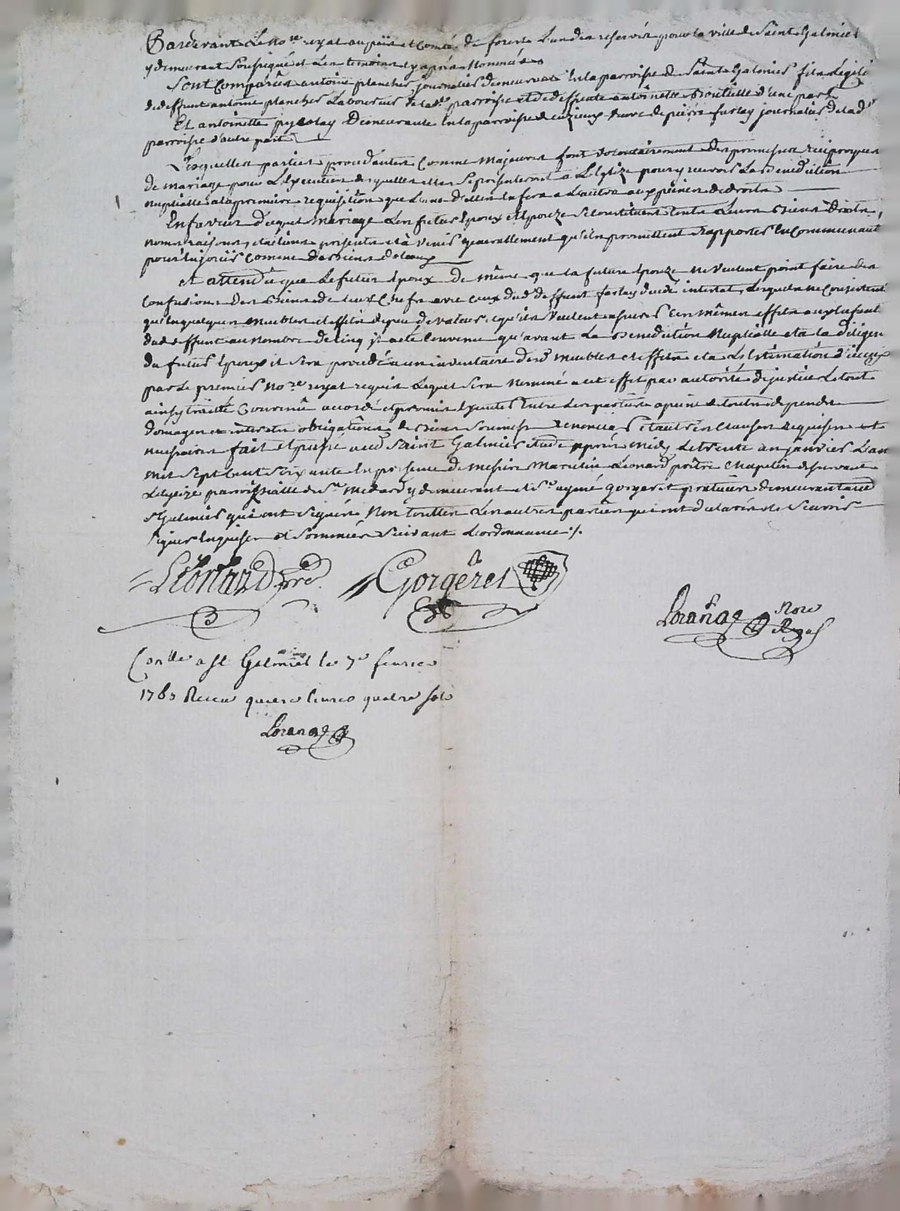 Pardevant Le no.re royal au païs et Comté de forests L'un des reservés pour la ville de Saint Galmier
y demeurant soussigné et Les temoins cy apres Nommés
Sont Comparus antoine plancher journalier demeurant En la parroisse de Saint Galmier fils Legit.e
de deffunt antoine plancher Laboureur de lad. parroisse et de deffunte antoinette d'une part
Et antoinette demeurante En la parroisse de cuzieux veuve de pierre furlay journalier de lad.
parroisse d'autre part
Lesquelles parties procedantes Comme Majeures font volontairement des promesses reciproques
de Mariage pour L'Execution desquelles elles se presenteront a L'Eglize pour y recevoir La Benediction
nuptialle a la premiere requisition que L'une d'elles En fera a L'autre aux peines de droits
En faveur duquel Mariage Les futurs Epoux et Epouze se Constituent tous Leurs Biens Droits,
noms raisons, et actions presents et a venir generallement qu'ils promettent rapporter En Communauté
pour En jouir Comme des biens dotaux
et attendu que Le futur Epoux de même que La future Epouze ne veulent point faire des
Confusions des Biens de leurs Chefs avec ceux dud. deffunt furlay decedé intestat, Lesquels ne Consistent
qu'En quelques meubles et effets de peu de valeur, et qu'ils veulent assurer Ces mêmes effets aux Enfants
dud. deffunt au nombre de Cinq, il a eté Convenu qu'avant La Benediction Nuptialle et a la diligence
du futur Epoux il sera procedé a un inventaire desd. meubles et effets et a L'Estimation d'iceux
par Le premier No.re royal requis Lequel sera nommé a cet effet par autorité de justice Le tout
ainsy traitté Convenu accordé et promis Executer Entre Les parties a peine de tous depends
domages et interests obligations de biens soumises renonciations Et autres Clauses requises et
necessaires fait et passé aud. Saint Galmier Etude apres midy Le trente un janvier L'an
mil sept Cent soixante En presence de messire Leonard prêtre Chapelin desservant
L'Eglize parroissialle de St. Medard y demeurant et Sr. aymé Gorgeret praticien demeurant aud.
St Galmier qui ont signé Non touttes Les autres parties qui ont declaré ne sçavoir
signer Enquises et sommées suivant L'ordonnance ./.
Leonard pre
Gorgeret
Lorange No.re Royal
Con.lle a St. Galmier le 7e fevrier
Receu livres quatre sols
Lorange